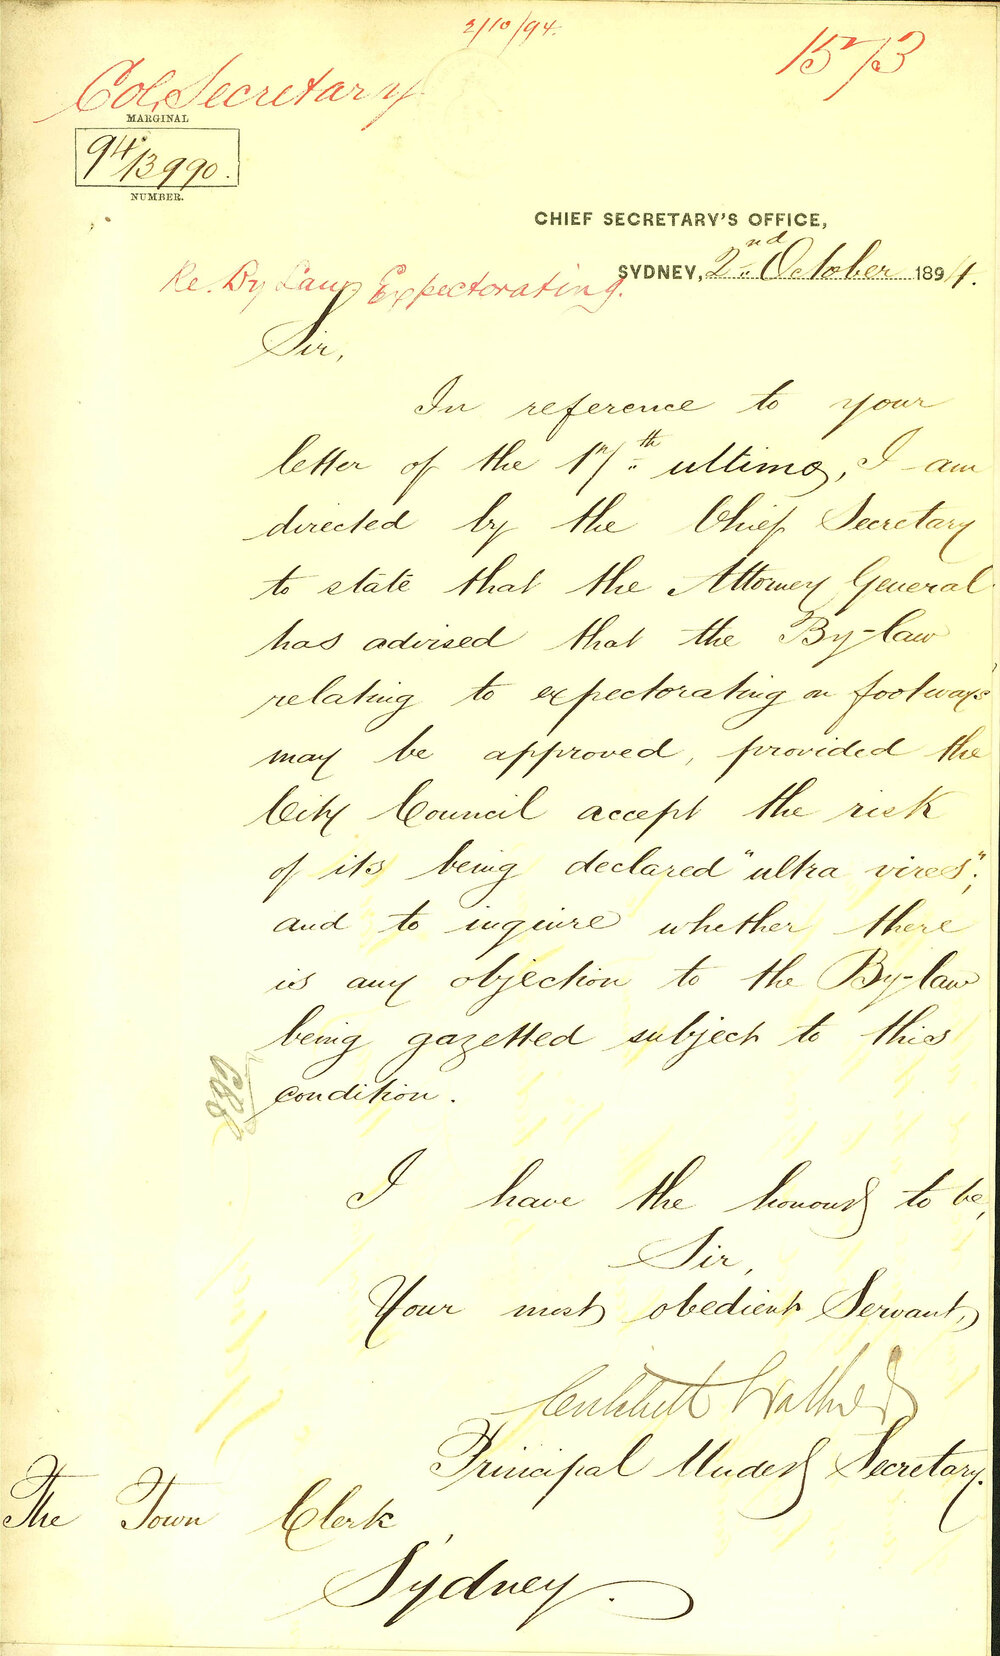 2/10/94.
1573
Col. Secretary
MARGINAL
94/13990.
NUMBER.
CHIEF SECRETARY'S OFFICE,
SYDNEY, 2nd October 1894.
Re. By Laws Expectorating.
Sir,
In reference to your
letter of the 17th ultimo, I am
directed by the Chief Secretary
to state that the Attorney General
has advised that the By-law
relating to expectorating on footways
may be approved, provided the
City Council accept the risk
of its being declared "ultra vires";
and to inquire whether there
is any objection to the By-law
being gazetted subject to this
condition.
I have the honour to be,
Sir,
Your most obedient Servant,
Critchett Walker
Principal Under Secretary.
The Town Clerk,
Sydney.